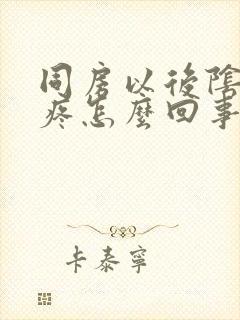 同房以後陰
疼怎麼回事
卡泰寧